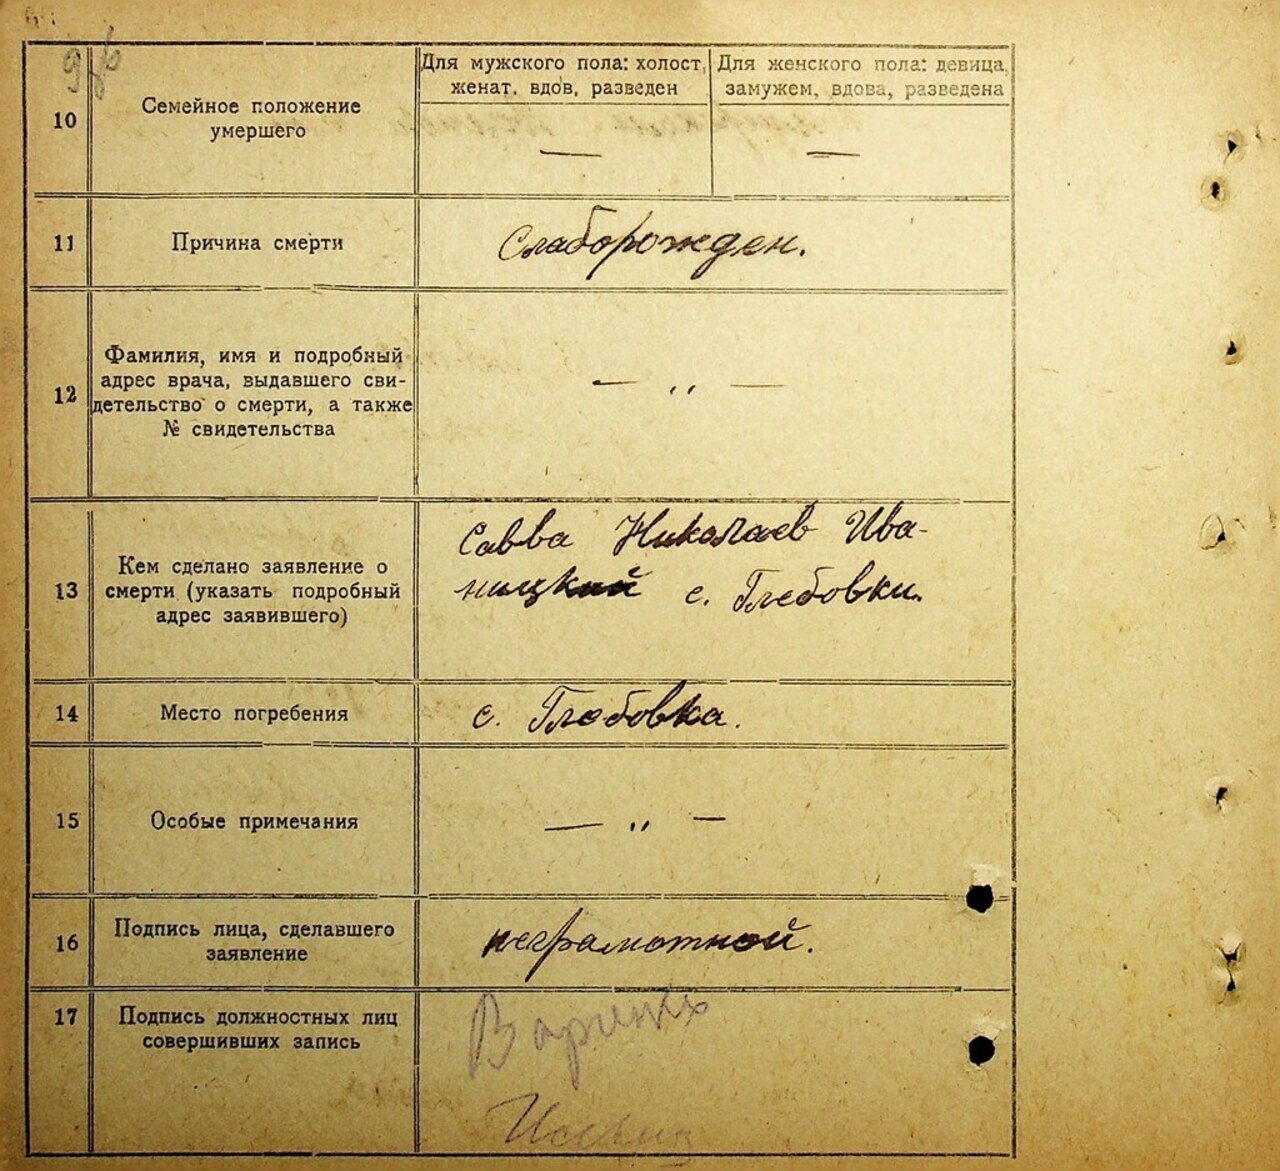 10
Семейное положение
умершего
Для мужского пола: холост,
женат, вдов, разведен
—
Для женского пола: девица,
замужем, вдова, разведена
—
11
Причина смерти
Слаборожден.
12
Фамилия, имя и подробный
адрес врача, выдавшего сви-
детельство о смерти, а также
№ свидетельства
— „ —
13
Кем сделано заявление о
смерти (указать подробный
адрес заявившего)
Савва Николаев Ива-
ницкий с. Глебовки.
14
Место погребения
с. Глебовка.
15
Особые примечания
— „ —
16
Подпись лица, сделавшего
заявление
неграмотной.
17
Подпись должностных лиц
совершивших запись